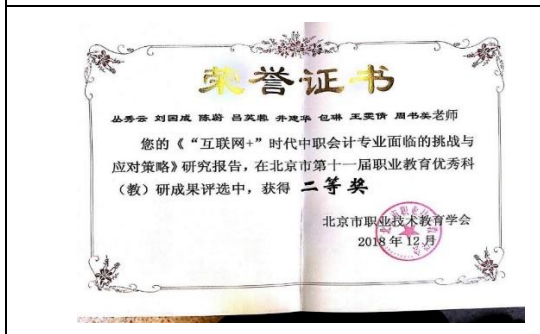 荣誉证书
丛秀云 刘国成 陈蔚 吕英 井建华 包琳 王雯倩 周书美老师
您的《“互联网+”时代中职会计专业面临的挑战与
应对策略》研究报告,在北京市第十一届职业教育优秀科
（教）研成果评选中，获得 二等奖
北京市职业技术教育学会
2018年12月